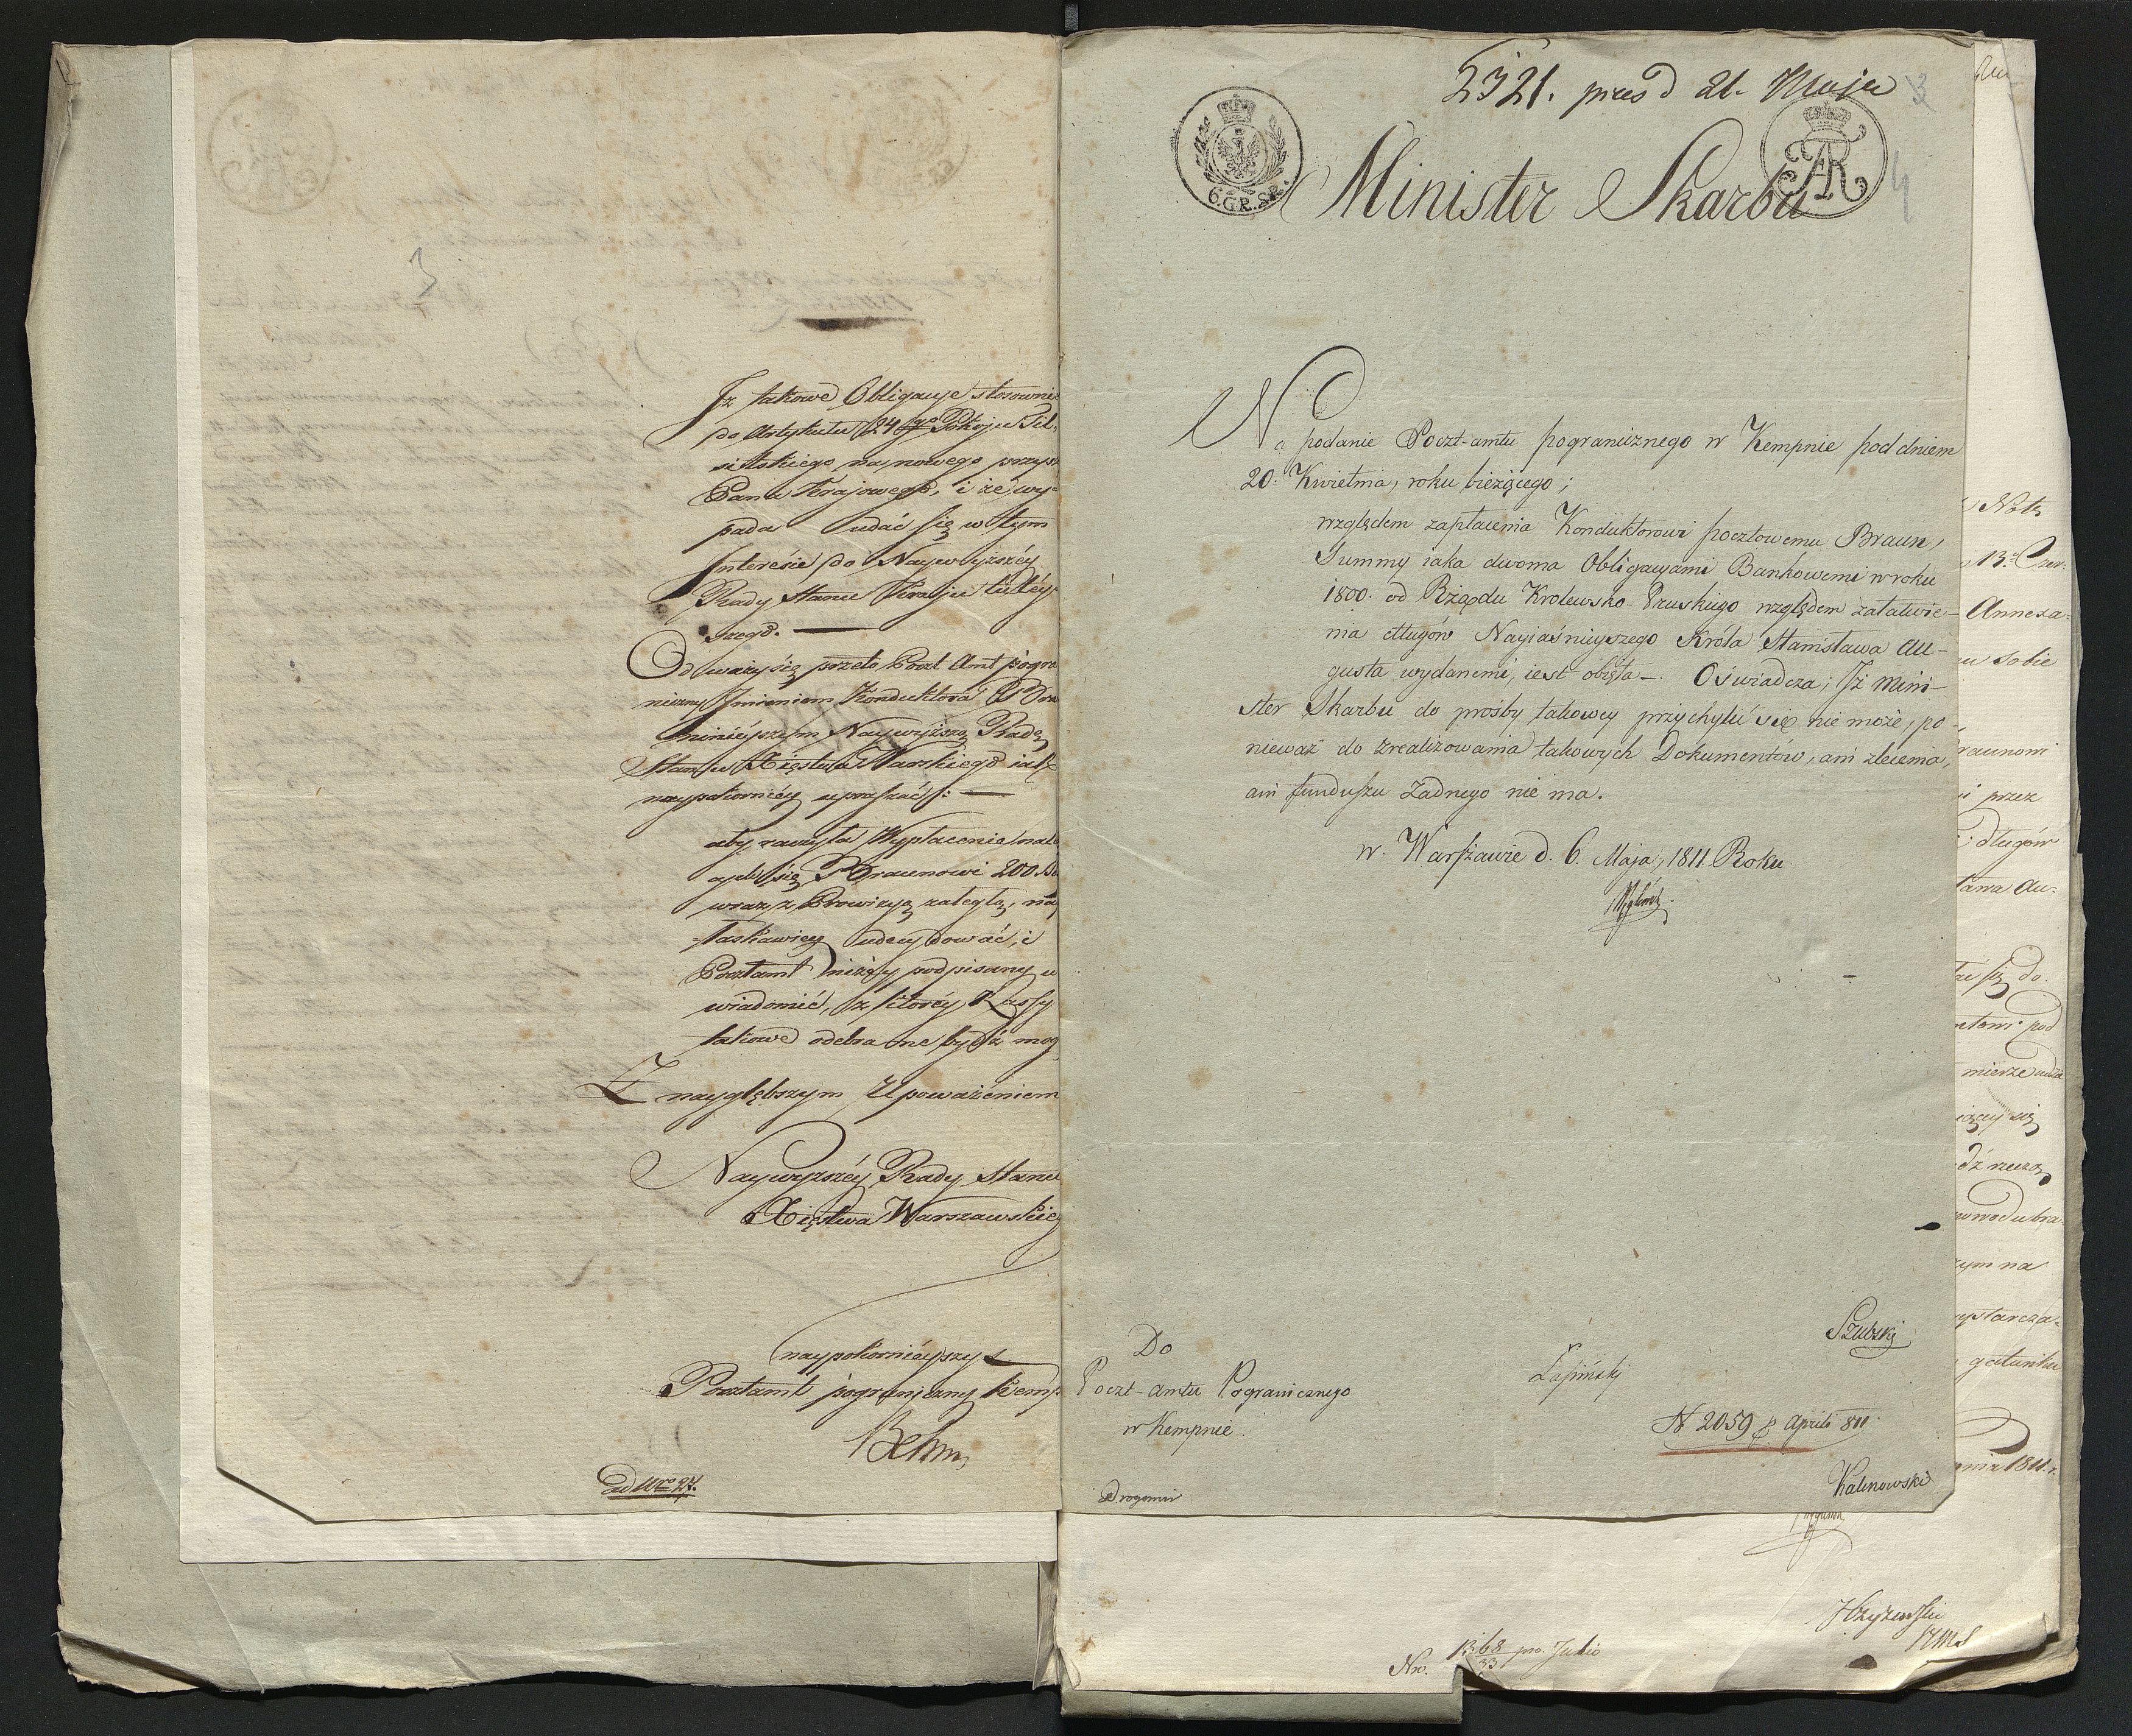 3
Iż takowe Obligacye stosownie
do Artykułu 24go Pokoju Til-
sitskiego na nowego przys
Pana Krajowego, i że wy-
pada udać się w tym
Interesie do Naywyższéy
Rady Stanu Kraju tutéy-
szego.
Odważy się przeto Poczt Amt pogra
niczny Imieniem Konduktora Bra
ninieyszym Naywyższą Radę
Stanu Xięstwa Warskiego iak
naypokorniéy upraszać:
aby raczyła Wypłacenie nale
cych się Braunowi 200
wraz z Prowizyą zaległą, nay
łaskawiey udecydować, i
Pocztamt niżéy podpisany u
wiadomić, z któréy Kassy
takowe odebrane bydź mog
Z naygłębszym Uposzanowaniem
Naywyższéy Rady Stanu
Xięstwa Warszawskieg
naypokornieyszy
Pocztamt pograniczny Kemp
Behm
ad Nro 27.
2321. pras d 21. Maja
3
4
6.GR.SR.
FAR
Minister Skarbu
Na podanie Poczt-amtu pogranicznego w Kempnie pod dniem
20. Kwietnia, roku bieżącego;
względem zapłacenia Konduktorowi pocztowemu Braun,
Summy iaka dwoma Obligacyami Bankowemi w roku
1800. od Rządu Krolewsko-Pruskiego względem załatwie-
nia długów Nayiaśnieyszego Króla Stanisława Au-
gusta wydanemi, iest obięta -. Oświadcza; Iż Mini-
ster Skarbu do prośby takowey przychylić się nie może, po-
nieważ do zrealizowania takowych Dokumentów, ani zlecenia,
ani funduszu żadnego nie ma.
w Warszawie d. 6. Maja, 1811. Roku
Do
Poczt-amtu Pogranicznego
w Kempnie.
Szubski
Łapiński
N 2059 Aprili 811
Kalinowski
Drogomir
Notę
13. Czer-
Annexa-
sobie
raunowi
przez
długów
ława Au-
się do
pod
mierze
się
dź rzeczą
na
ystarcza-
gatunku
nia 1811. r.
Nro. 1368/33 pro. Julio